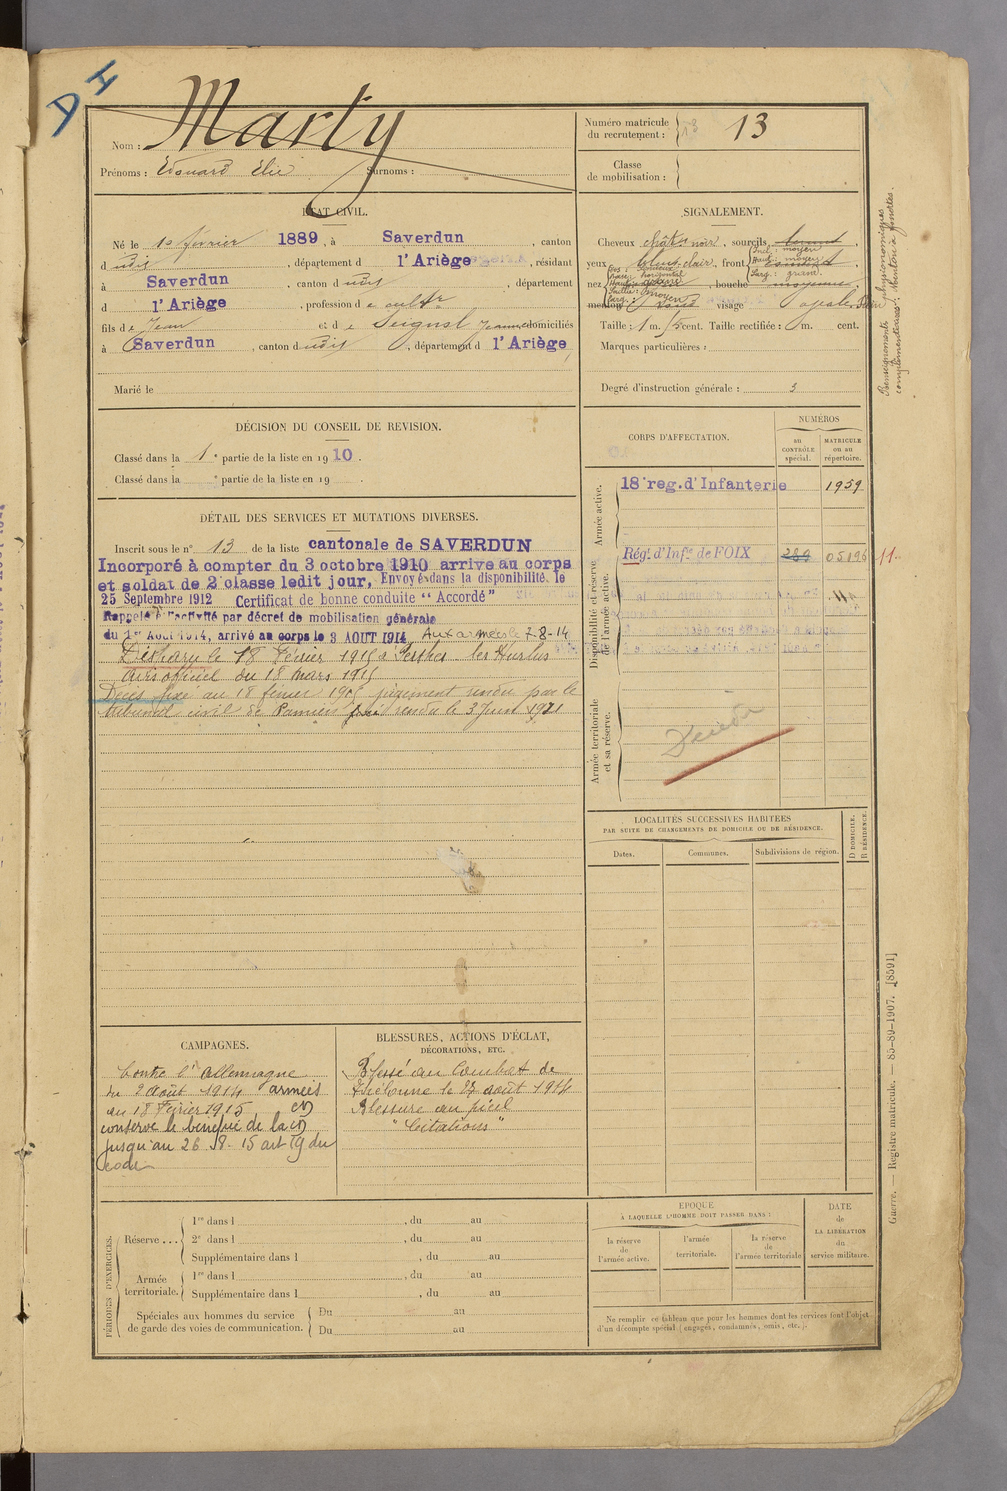 D H
Nom : Marty
Prénoms : Edouard Elie Surnoms :
Numéro matricule
du recrutement : 13
Classe
de mobilisation :
ÉTAT CIVIL.
Né le 10 février 1889, à Saverdun, canton
d udit, département d l'Ariège, résidant
à Saverdun, canton d udit, département
d l'Ariège, profession d e cultr
fils de Jean et d e Seignol Jeanne, domiciliés
à Saverdun, canton d udit, département d l'Ariège,
Marié le
SIGNALEMENT.
Cheveux chât noir, sourcils
yeux bleus clair, front Incl : moyen
Haut : moyen
Larg : grand
nez Dos :
Base : horizontal
Hauteur
Saillie :
Larg : moyen
, bouche moyenne,
menton rond visage
Taille : 1 m. cent. Taille rectifiée : m. cent.
Marques particulières :
Degré d'instruction générale : 3
Renseignements physionomiques
complémentaires : menton à fossettes.
DÉCISION DU CONSEIL DE REVISION.
Classé dans la 1e partie de la liste en 1910.
Classé dans la e partie de la liste en 19 .
CORPS D'AFFECTATION.
NUMÉROS
au
CONTRÔLE
spécial.
MATRICULE
ou au
répertoire.
Armée active.
18e reg. d'Infanterie 1959
Disponibilité et réserve
de l'armée active.
Régt. d'Infie de FOIX 289 05196 11.
Armée territoriale
et sa réserve.
Décédé
DÉTAIL DES SERVICES ET MUTATIONS DIVERSES.
Inscrit sous le n° 13 de la liste cantonale de SAVERDUN
Incorporé à compter du 3 octobre 1910 arrive au corps
et soldat de 2e classe ledit jour, Envoyé dans la disponibilité, le
25 Septembre 1912 Certificat de bonne conduite "Accordé"
Rappelé à l'activité par décret de mobilisation générale
du 1er Août 1914, arrivé au corps le 3 AOUT 1914 Aux armées le 7-8-14
Disparu le 18 février 1915 à Perthes les Hurlus
avis officiel du 18 mars 1915
Décès fixé au 18 fevrier 1915 jugement rendu par le
tribunal civil de Pamiers rendu le 3 Juin 1921
LOCALITÉS SUCCESSIVES HABITÉES
PAR SUITE DE CHANGEMENTS DE DOMICILE OU DE RÉSIDENCE.
Dates.
Communes.
Subdivisions de région.
D DOMICILE.
R RÉSIDENCE.
CAMPAGNES.
Contre l'Allemagne
du 2 août 1914 armées
au 18 Février 1915
conserve le benefice de la
jusqu'au 26 8- 15 art 19 du
code
BLESSURES, ACTIONS D'ÉCLAT,
DÉCORATIONS, ETC.
Blessé au combat de
Thélonne le 27 août 1914
Blessure au pied
"Citations"
PÉRIODES D'EXERCICES.
Réserve ...
1re dans l , du au
2e dans l , du au
Supplémentaire dans l , du au
Armée
territoriale.
1re dans l , du au
Supplémentaire dans l , du au
Spéciales aux hommes du service
de garde des voies de communication.
Du au
Du au
EPOQUE
À LAQUELLE L'HOMME DOIT PASSER DANS :
la réserve
de
l'armée active.
l'armée
territoriale.
la réserve
de
l'armée territoriale
DATE
de
LA LIBÉRATION
du
service militaire.
Ne remplir ce tableau que pour les hommes dont les services font l'objet
d'un décompte spécial (engagés, condamnés, omis, etc.).
Guerre. — Registre matricule. — 85-89-1907. [8591]